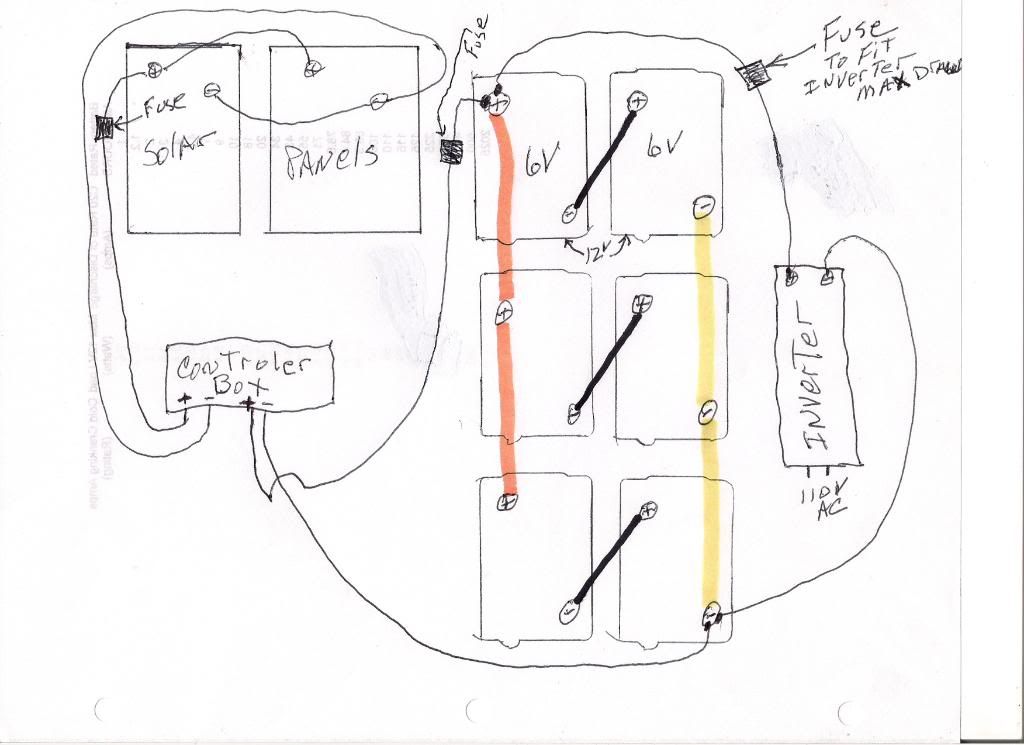 Fuse
Solar
Panels
Fuse
Fuse
To Fit
Inverter
Max Draw
6V
6V
12V
Controler
Box
+ - + -
Inverter
110V
AC